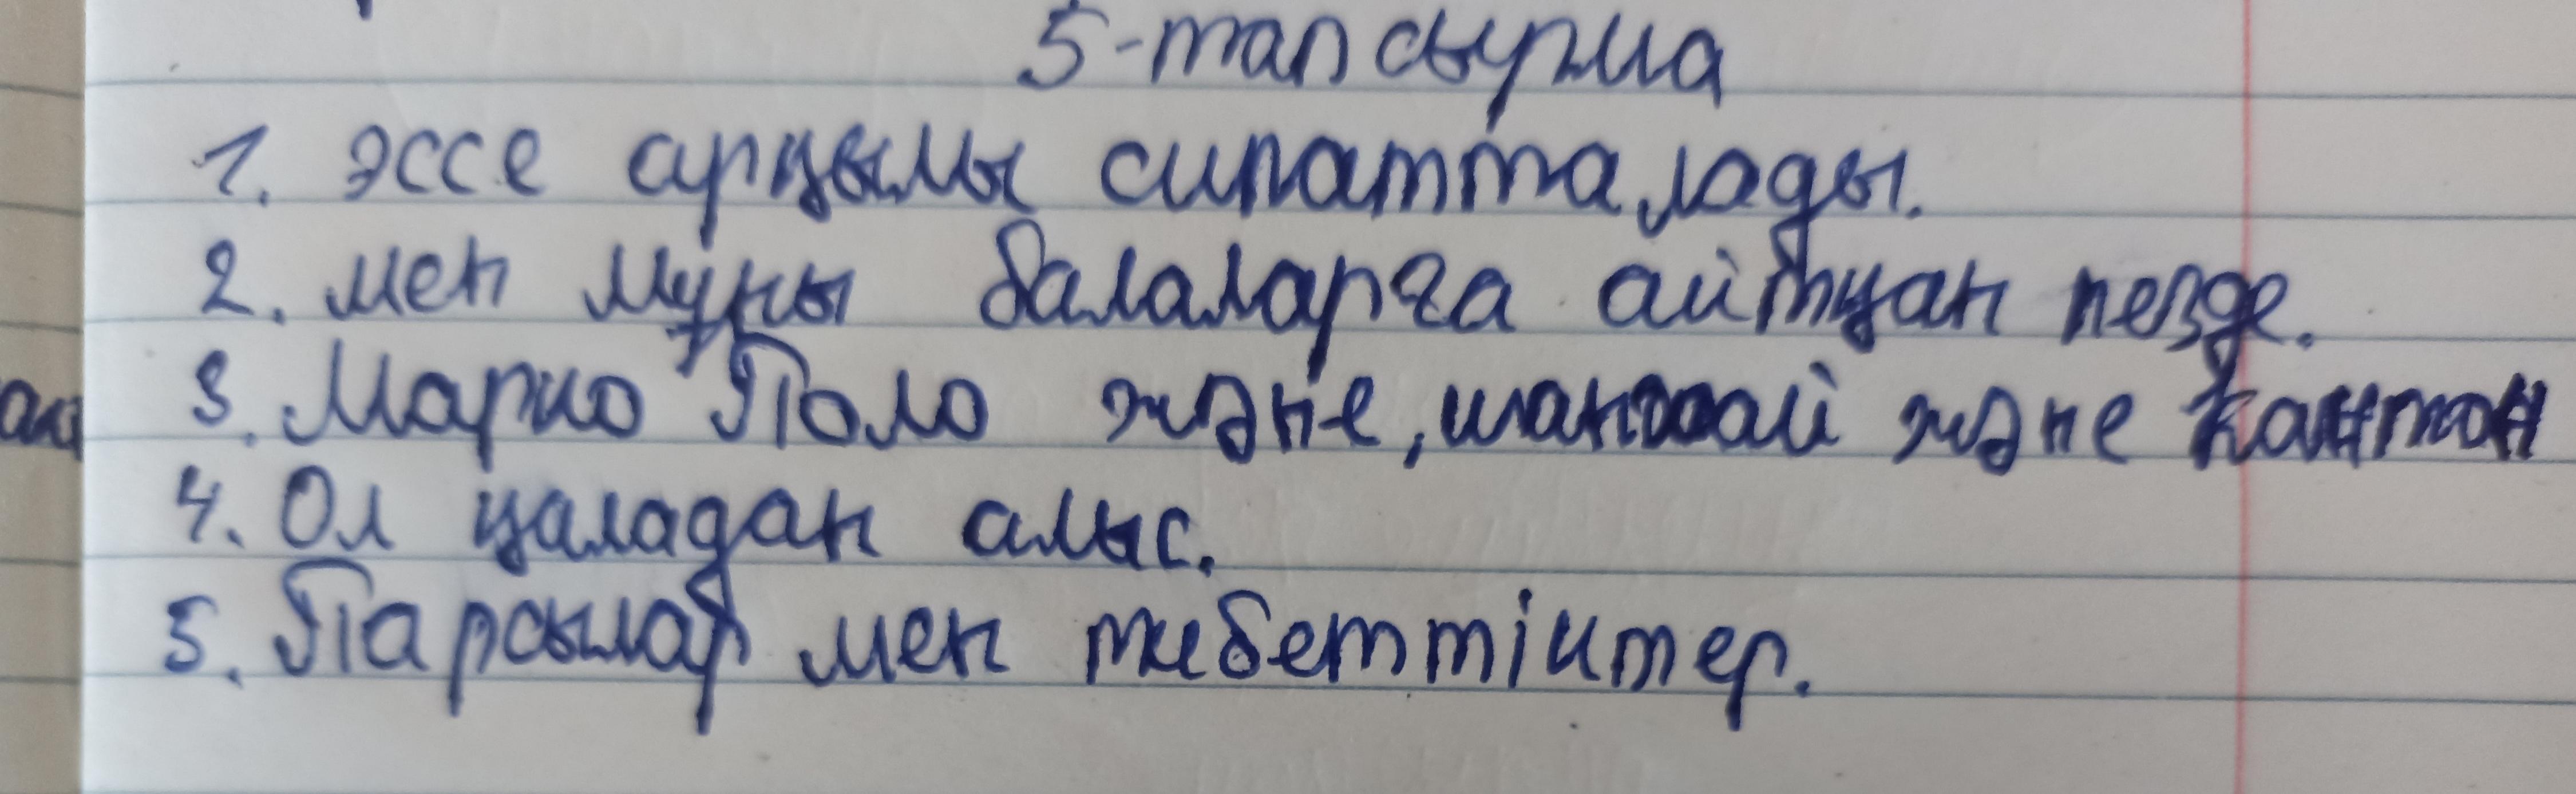 5-тапсырма
1. эссе арқылы сипатталады.
2. мен мұны балаларға айтқан кезде.
3. Марко Поло және, шанхай және Кантон
4. Ол қаладан алыс.
5. Парсылар мен тибеттіктер.